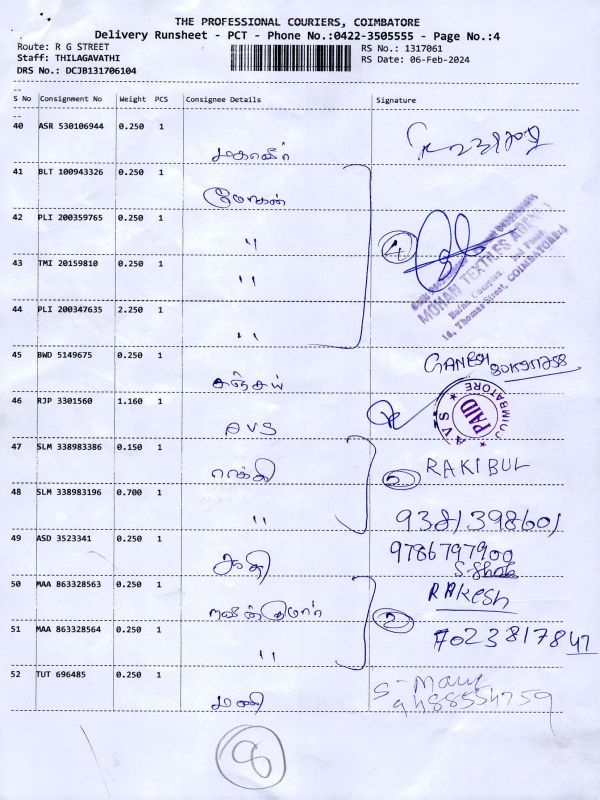 THE PROFESSIONAL COURIERS, COIMBATORE
Delivery Runsheet - PCT - Phone No.:0422-3505555 - Page No.:4
Route: R G STREET RS No.: 1317061
Staff: THILAGAVATHI RS Date: 06-Feb-2024
DRS No.: DCJB131706104
S No Consignment No Weight PCS Consignee Details Signature
40 ASR 530106944 0.250 1
மகாவீர்
41 BLT 100943326 0.250 1
மோகன்
42 PLI 200359765 0.250 1
"
4
MOHAN TEXTILES AGENCY
16, Thomas Street, COIMBATORE-1
43 TMI 20159810 0.250 1
"
44 PLI 200347635 2.250 1
"
45 BWD 5149675 0.250 1
சஞ்சய்
GANESH
46 RJP 3301560 1.160 1
AVS
AVS PAID COIMBATORE
47 SLM 338983386 0.150 1
ராக்கி
2 RAKIBUL
48 SLM 338983196 0.700 1
"
9381398601
49 ASD 3523341 0.250 1
9786797900
50 MAA 863328563 0.250 1
RAkesh
ரவின்குமார்
2
51 MAA 863328564 0.250 1
"
7023817847
52 TUT 696485 0.250 1
S-Mani
9488554759
மணி
8